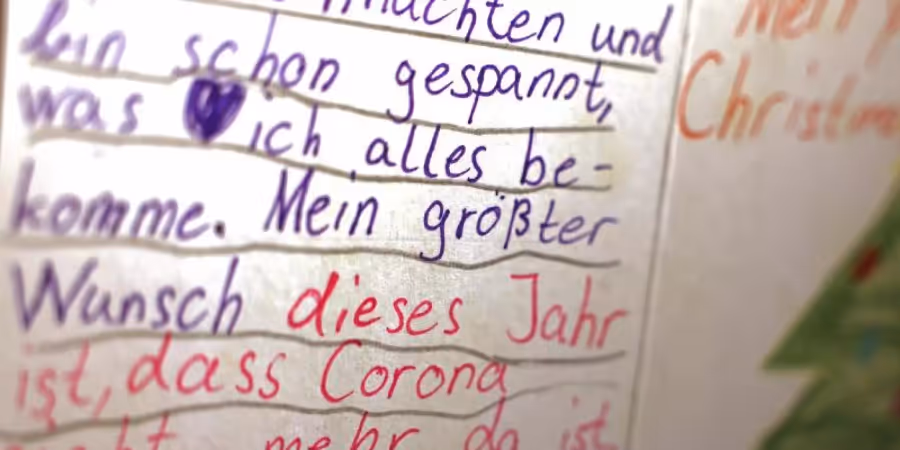 und
bin schon gespannt,
was ich alles be-
komme. Mein größter
Wunsch dieses Jahr
ist, dass Corona
mehr da ist
Merry
Christmas